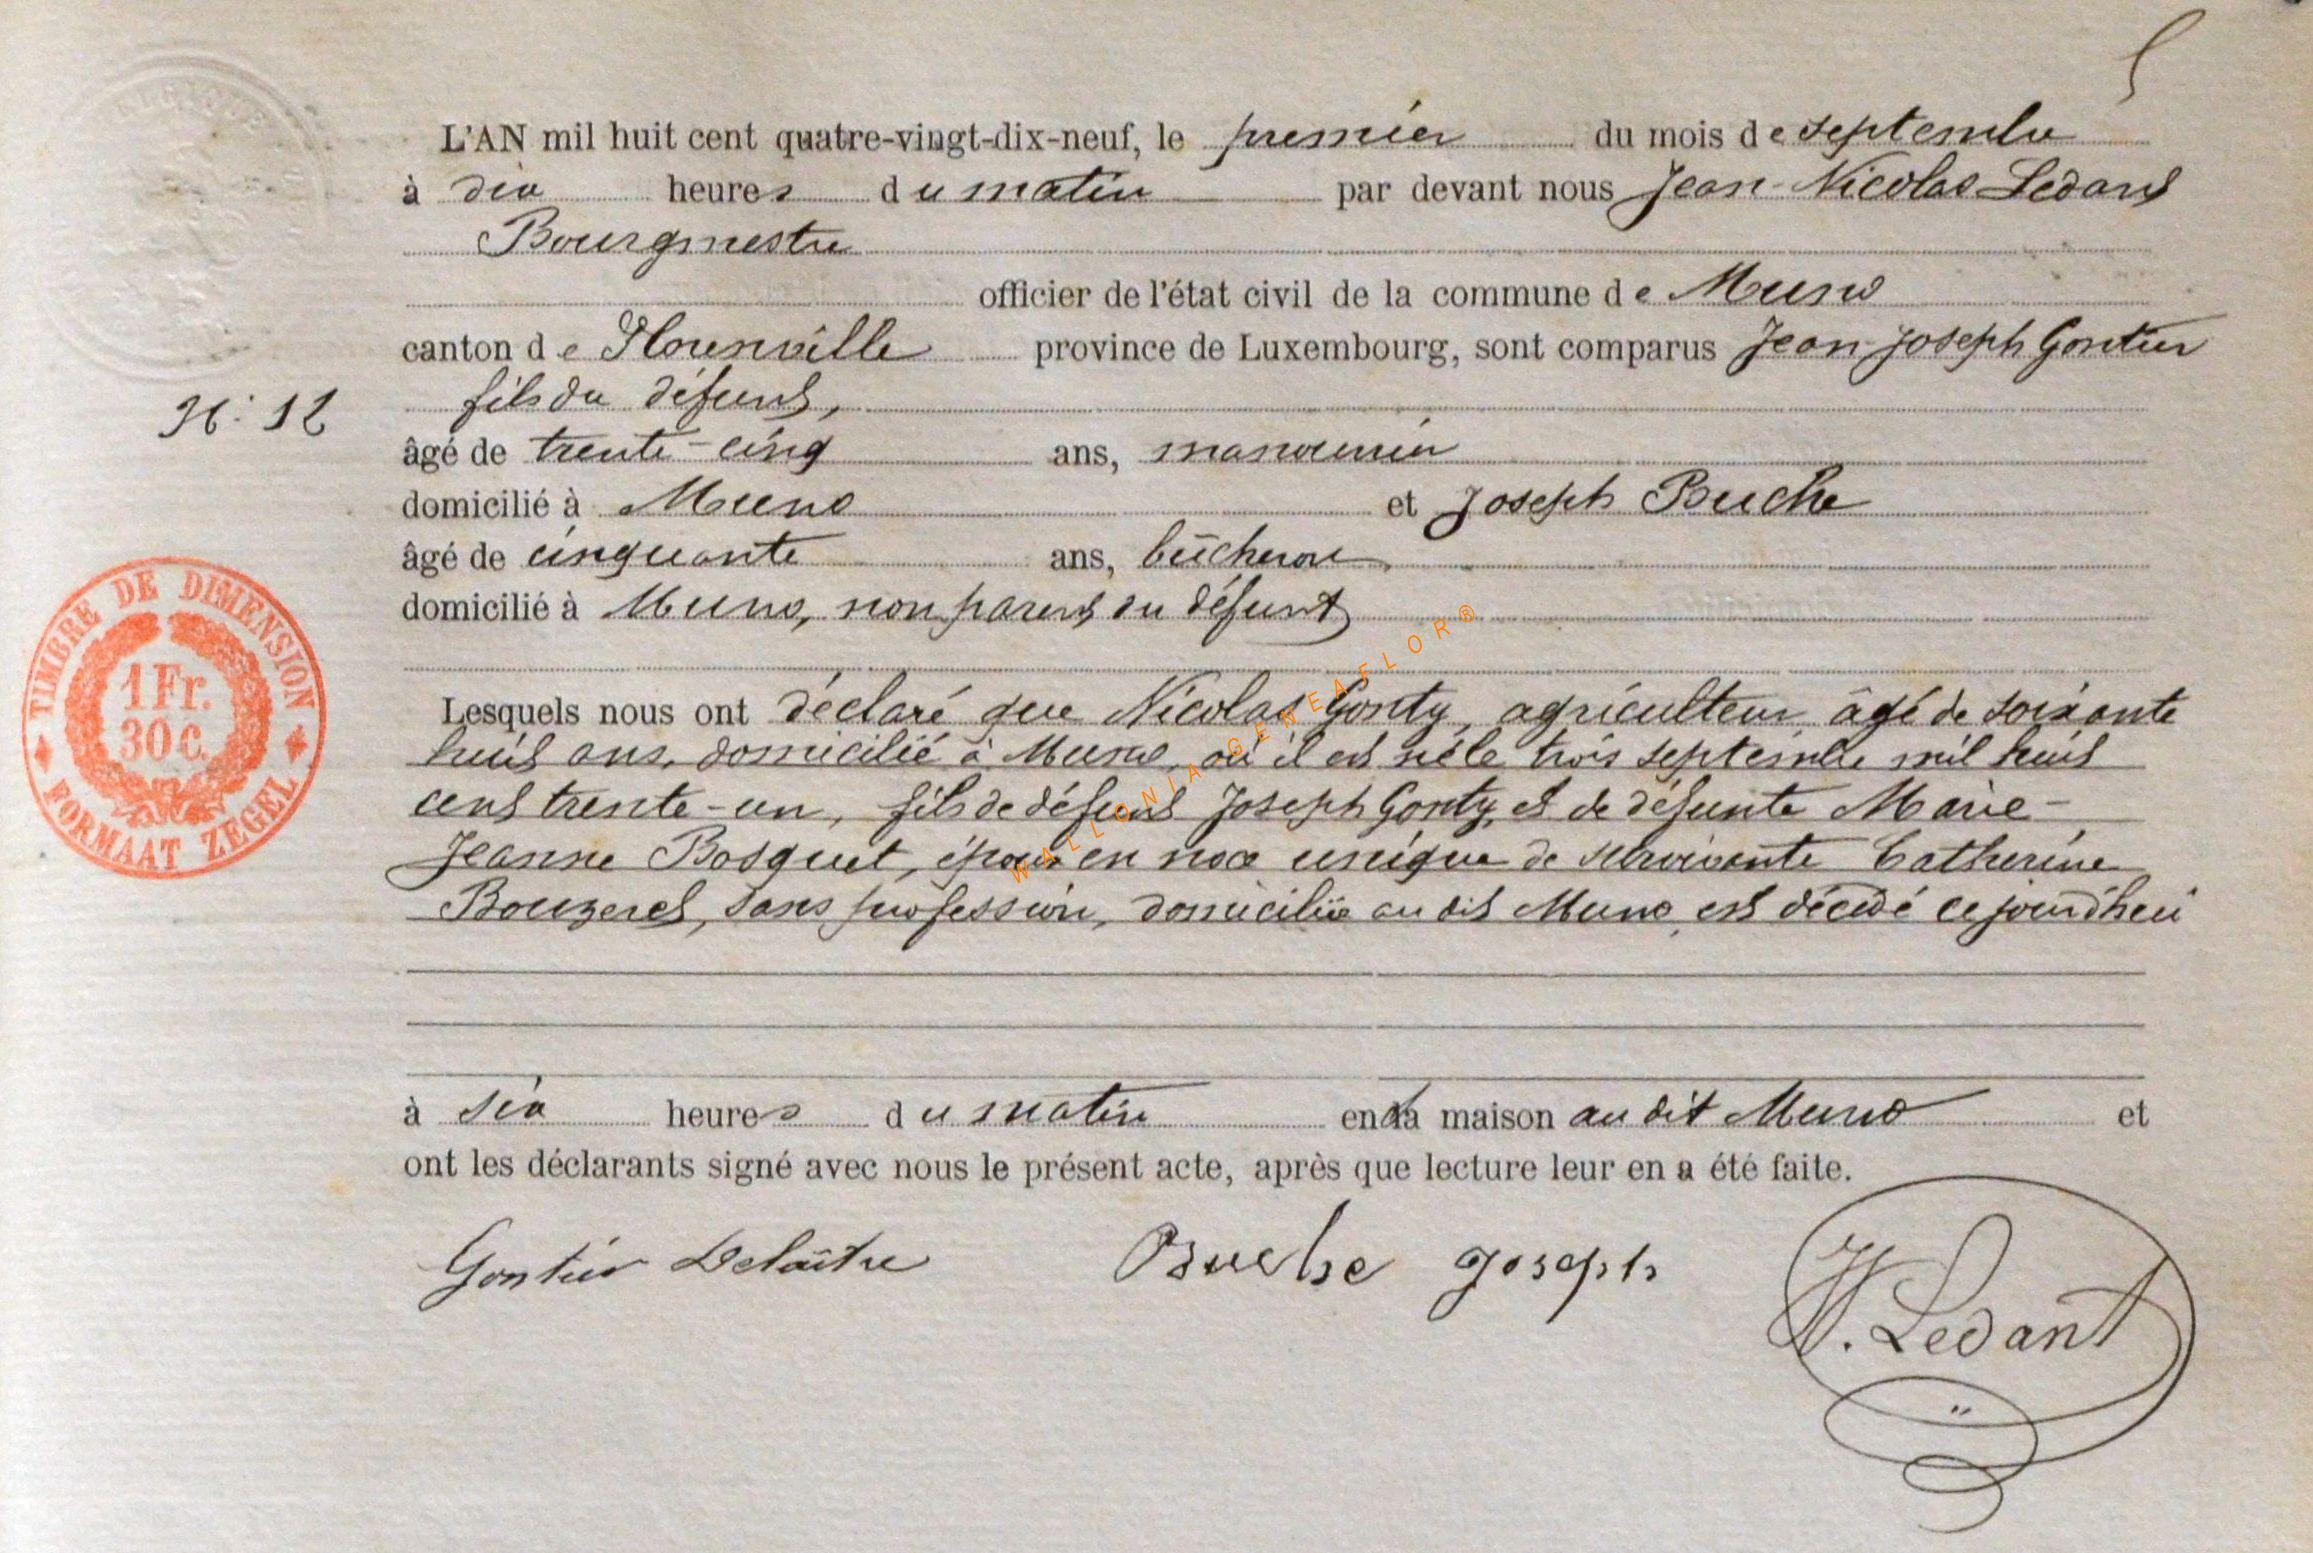 L'AN mil huit cent quatre-vingt-dix-neuf, le premier du mois de septembre
à dix heures du matin par devant nous Jean-Nicolas Ledant
Bourgmestre
officier de l'état civil de la commune de Muno
canton de Florenville province de Luxembourg, sont comparus Jean-Joseph Gontier
fils du défunt,
N: 12
âgé de trente-cinq ans, manouvrier
domicilié à Muno et Joseph Buche
âgé de cinquante ans, bûcheron,
domicilié à Muno, non parent du défunt
Lesquels nous ont déclaré que Nicolas Gonty, agriculteur, âgé de soixante
huit ans, domicilié à Muno, où il est né le trois septembre mil huit
cent trente-un, fils de défunt Joseph Gonty, et de défunte Marie-
Jeanne Bosquet, époux en noce unique de survivante Catherine
Bouzeret, sans profession, domiciliée au dit Muno, est décédé ce jourd'hui
à six heures du matin en sa maison au dit Muno et
ont les déclarants signé avec nous le présent acte, après que lecture leur en a été faite.
Gontier Delaître Buche Joseph
N. Ledant
BELGIQUE
TIMBRE DE DIMENSION
1 Fr.
30 C.
FORMAAT ZEGEL
WALLONIA GENEAFLOR®